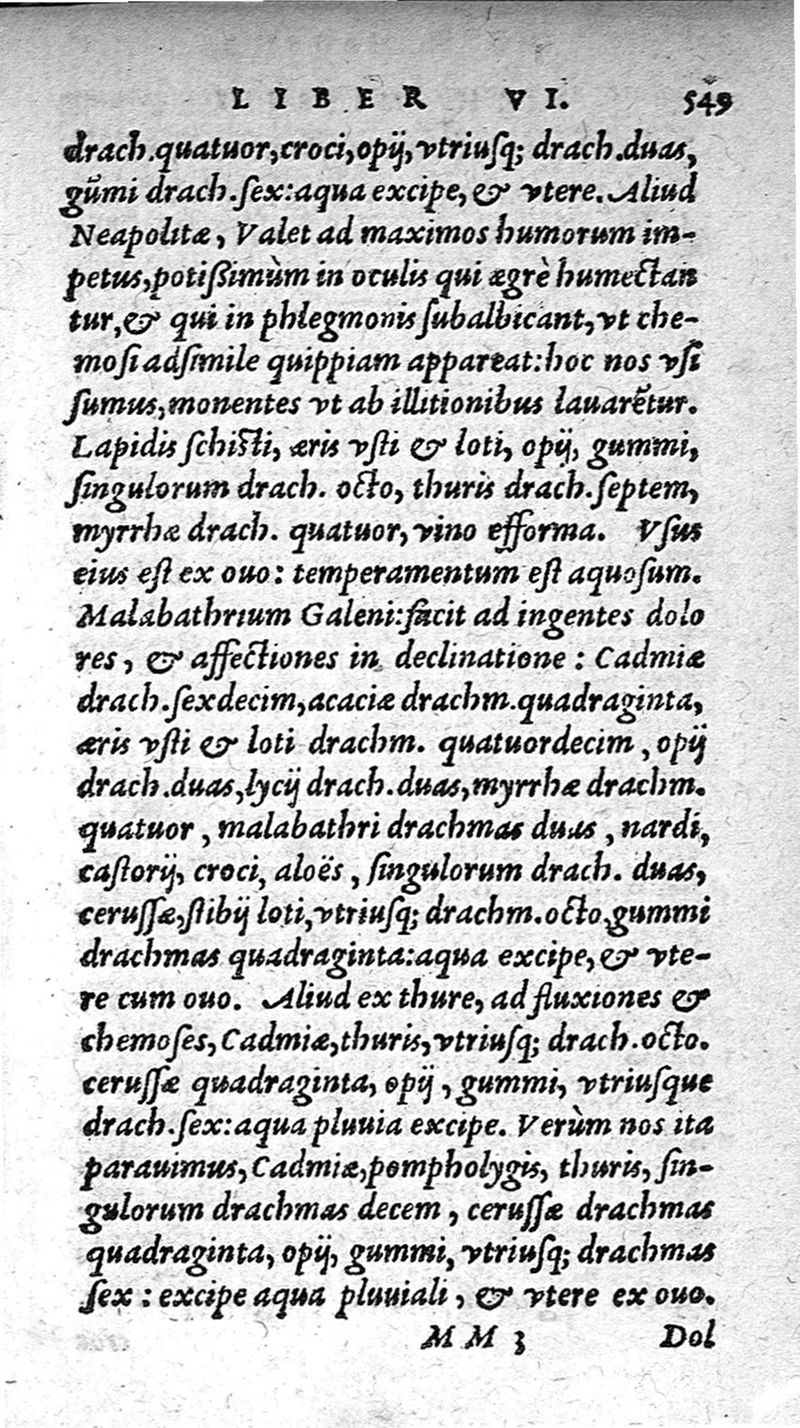 LIBER VI. 549
drach.quatuor,croci,opij,vtriuſq; drach.duas,
gūmi drach.ſex:aqua excipe, & vtere. Aliud
Neapolitæ, Valet ad maximos humorum im-
petus,potiſsimùm in oculis qui ægrè humectan
tur,& qui in phlegmonis ſubalbicant,vt che-
moſi adſimile quippiam appareat:hoc nos vſi
ſumus,monentes vt ab illitionibus lauarētur.
Lapidis ſchiſti, æris vſti & loti, opij, gummi,
ſingulorum drach. octo, thuris drach.ſeptem,
myrrhæ drach. quatuor, vino efforma. Vſus
eius eſt ex ouo: temperamentum eſt aquoſum.
Malabathrium Galeni:facit ad ingentes dolo
res, & affectiones in declinatione: Cadmiæ
drach.ſexdecim,acaciæ drachm.quadraginta,
æris vſti & loti drachm. quatuordecim, opij
drach.duas,lycij drach.duas,myrrhæ drachm.
quatuor, malabathri drachmas duas, nardi,
caſtorij, croci, aloës, ſingulorum drach. duas,
ceruſſæ,ſtibij loti,vtriuſq; drachm.octo,gummi
drachmas quadraginta:aqua excipe, & vte-
re cum ouo. Aliud ex thure, ad fluxiones &
chemoſes, Cadmiæ,thuris,vtriuſq; drach.octo.
ceruſſæ quadraginta, opij, gummi, vtriuſque
drach.ſex:aqua pluuia excipe. Verùm nos ita
parauimus, Cadmiæ,pompholygis, thuris, ſin-
gulorum drachmas decem, ceruſſæ drachmas
quadraginta, opij, gummi, vtriuſq; drachmas
ſex: excipe aqua pluuiali, & vtere ex ouo.
MM 3 Dol